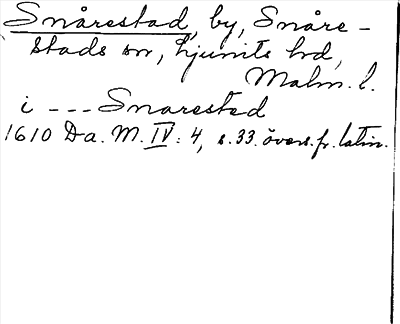 Snårestad, by, Snåre-
stads sn, Ljunits hd,
Malm. l.
i --- Snarested
1610 Da. M. IV: 4, s. 33. övers. fr. latin.